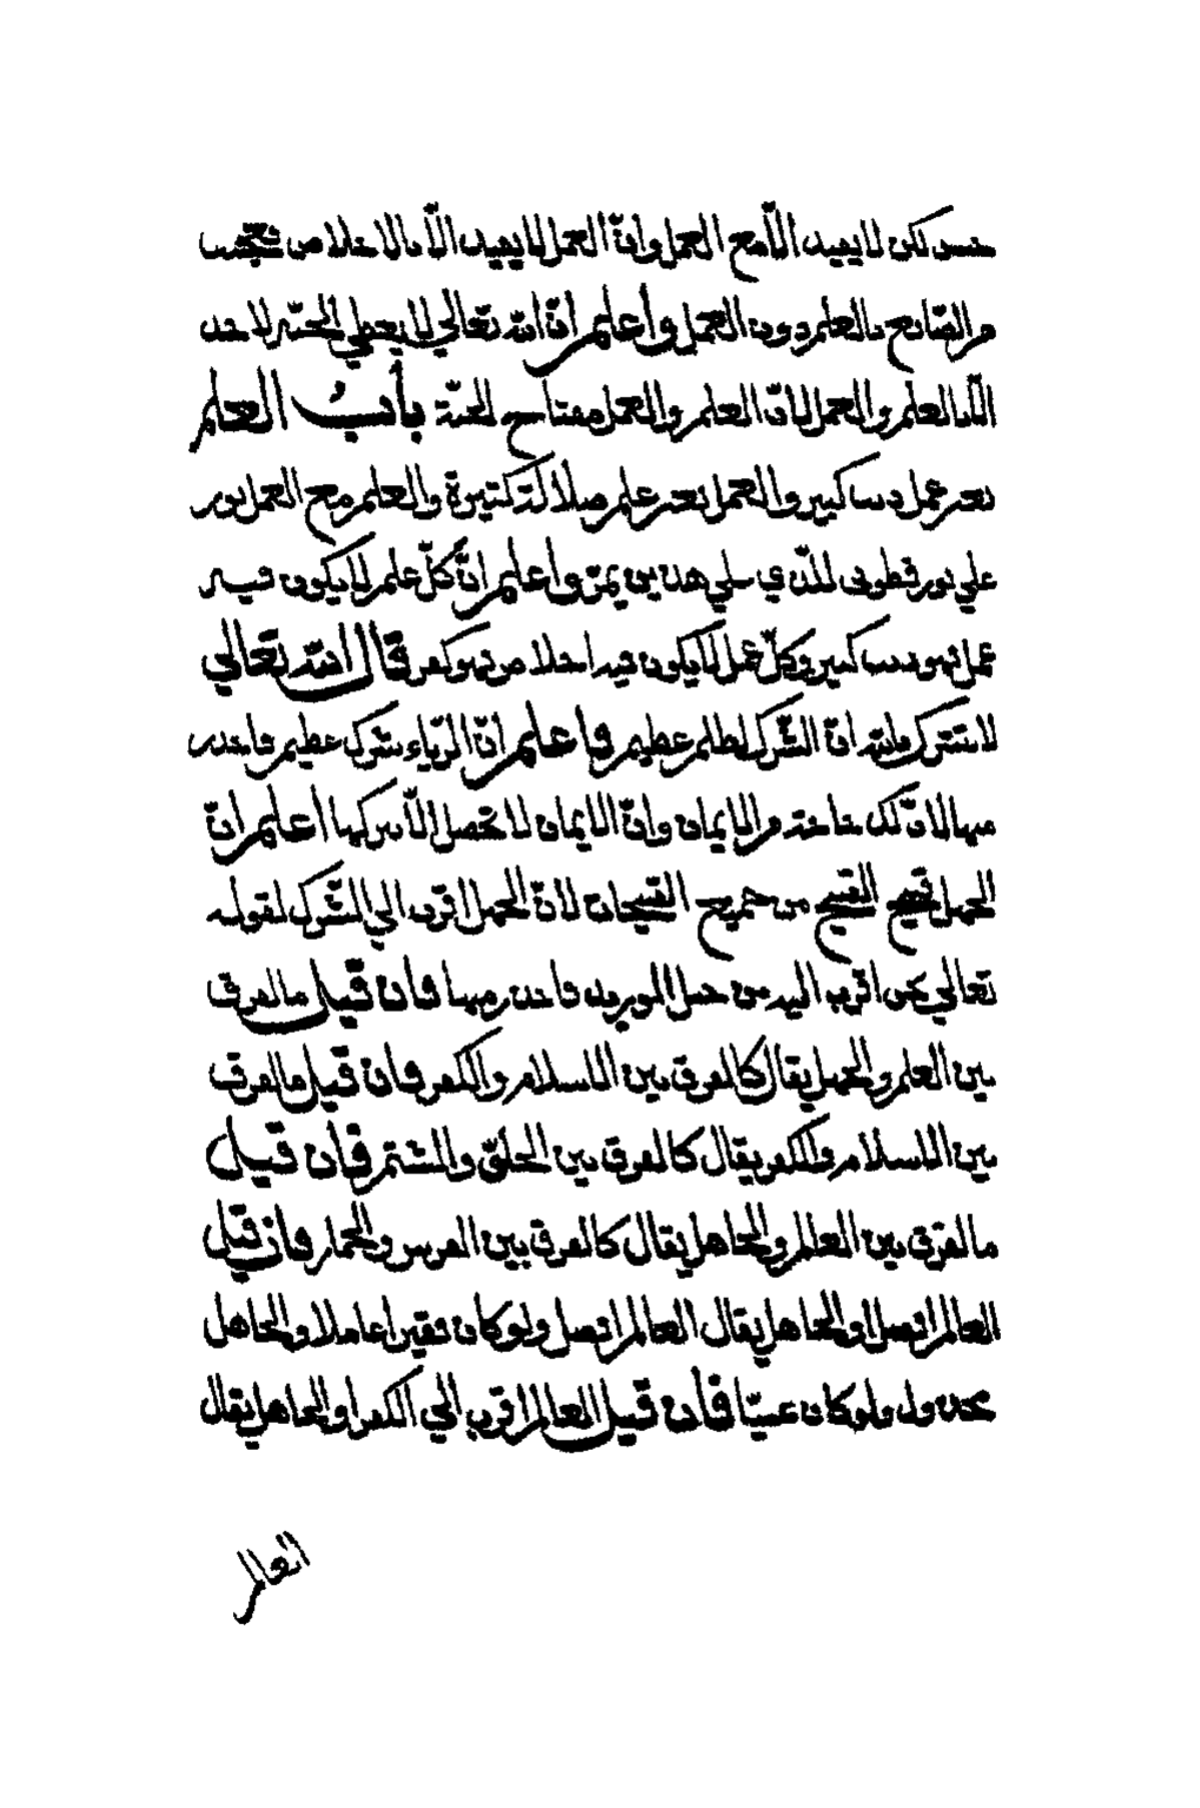 حسن لكن لا يفيد الّا مع العمل وانّ العمل لا يفيد الّا بالاخلاص فتعجّبت
من الصّانع بالعلم دون العمل واعلم انّ الله تعالي لا يعطي الجنّة لاحد
الّا بالعلم والعمل لانّ العلم والعمل مفتاح الجنّة باب العلم
بغير عمل ذنب كبير والعمل بغير علم ضلالة كثيرة والعلم مع العمل نور
علي نور فطوبى للّذي علي هذين يمرّ واعلم انّ كلّ علم لا يكون فيه
عمل فهو ذنب كبير وكلّ عمل لا يكون فيه اخلاص فهو كفر قال الله تعالي
لا تشرك بالله انّ الشّرك لظلم عظيم فاعلم انّ الرّياء شرك عظيم فاحذر
منها لانّ لك حاجة من الايمان وانّ الايمان لا تحصل الّا بتركها اعلم انّ
الجهل قبيح القبيح من جميع القبيحات لانّ الجهل اقرب الي الشّرك لقوله
تعالي نحن اقرب اليه من حبل الوريد فاحذر منها فان قيل ما الفرق
بين العلم والجهل يقال كالفرق بين الاسلام والكفر فان قيل ما الفرق
بين الاسلام والكفر يقال كالفرق بين الحلق والشتم فان قيل
ما الفرق بين العالم والجاهل يقال كالفرق بين الفرس والحمار فان قيل
العالم افضل او الجاهل يقال العالم افضل ولو كان فقيرا عاملا والجاهل
مخذول ولو كان غنيّا فان قيل العالم اقرب الي الكفر او الجاهل يقال
العالم